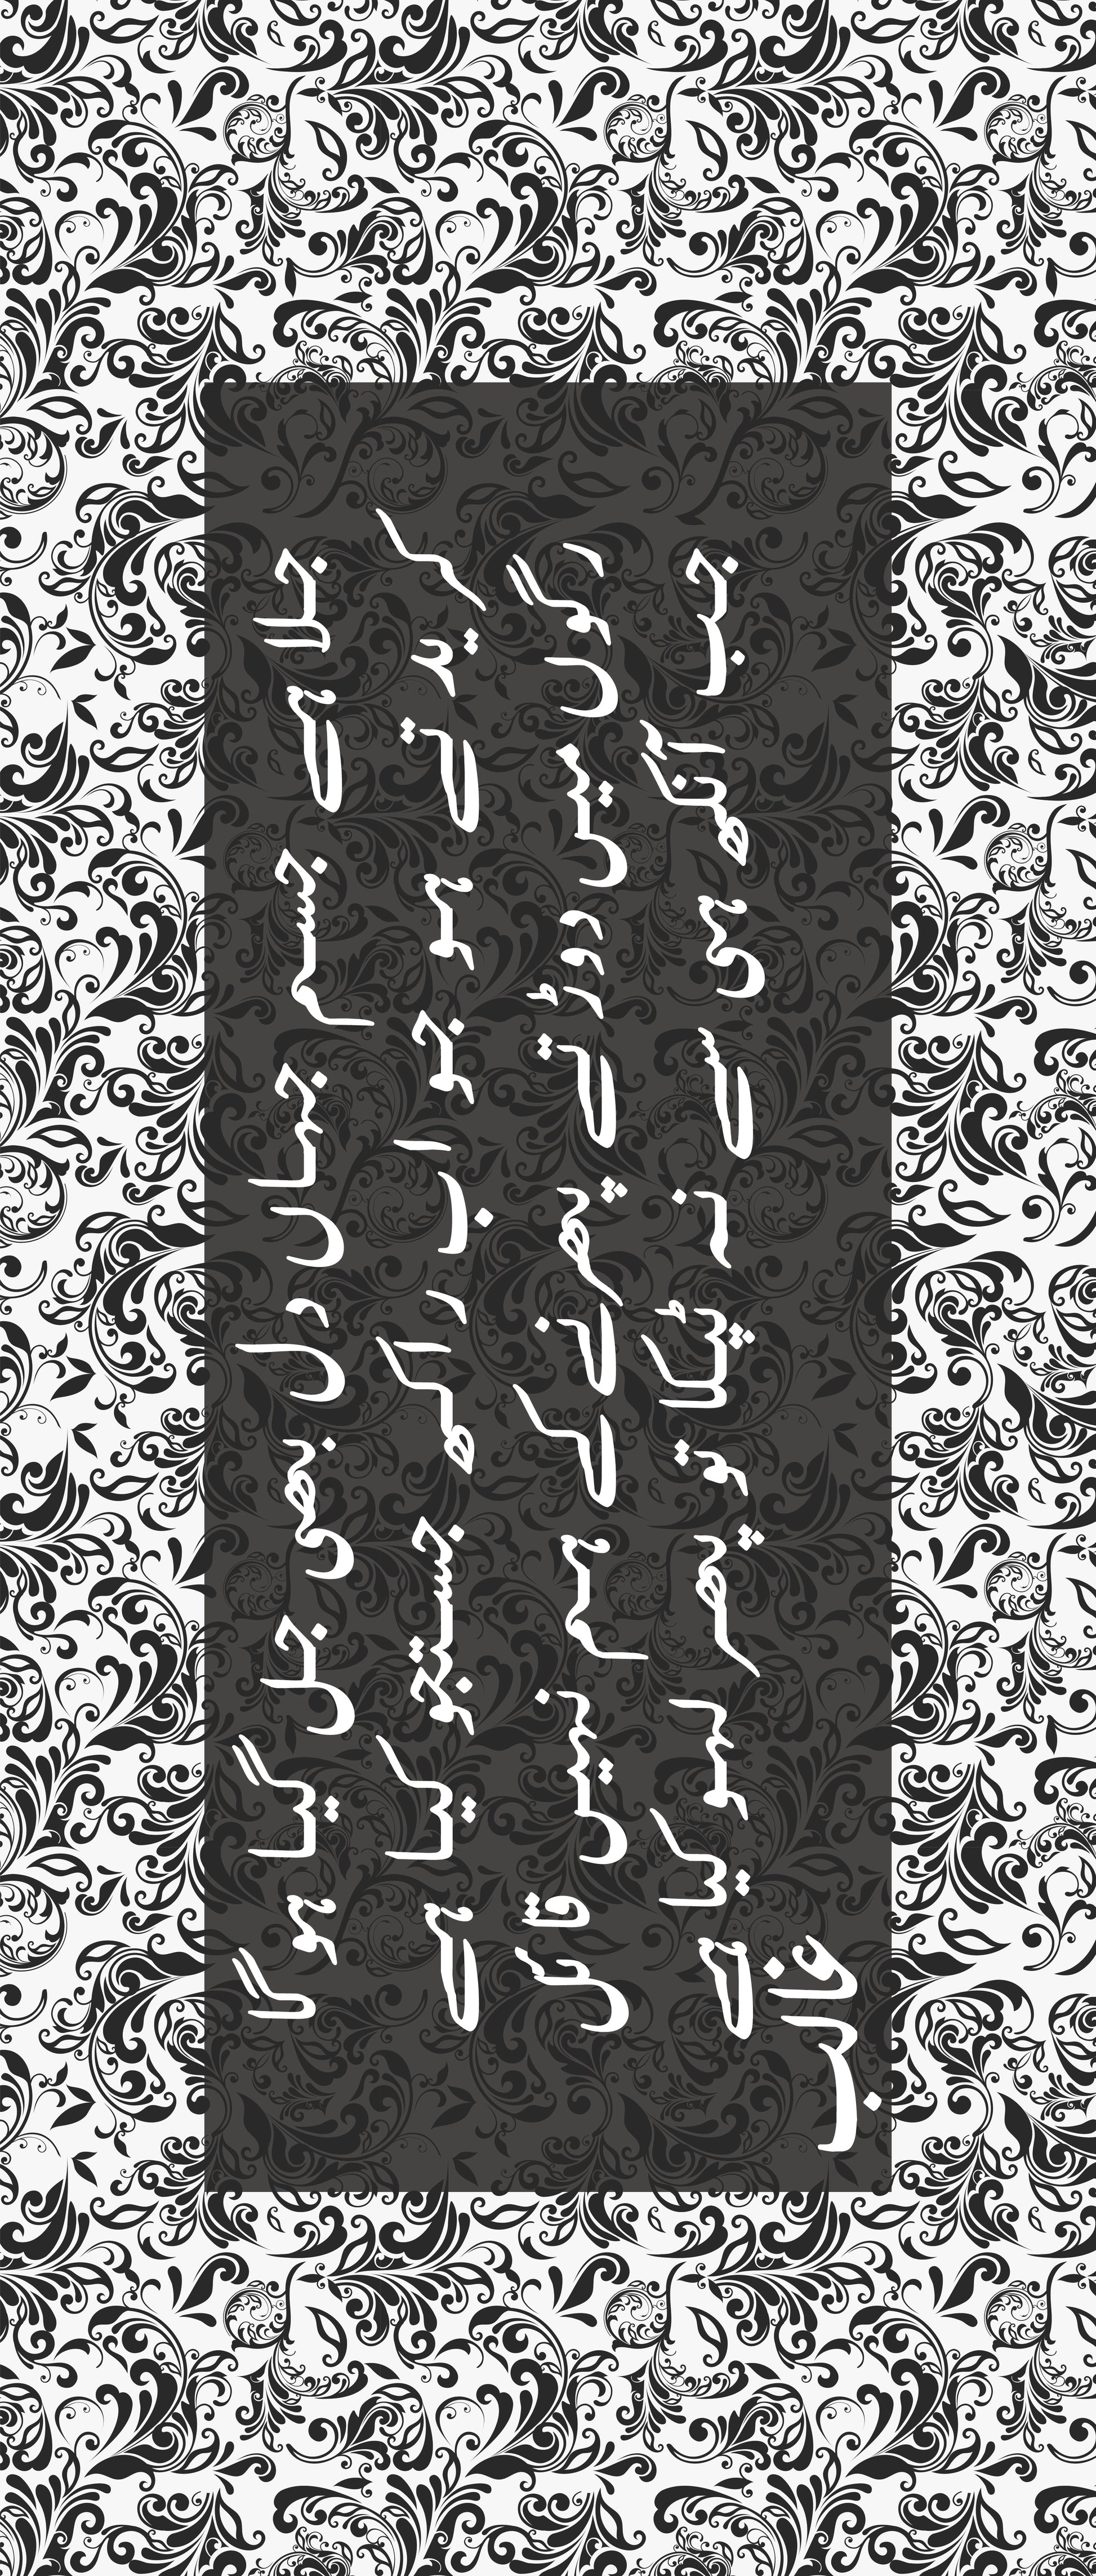 جلا ہے جسم جہاں دل بھی جل گیا ہوگا
کریدتے ہو جو اب راکھ جستجو کیا ہے
رگوں میں دوڑتے پھرنے کے ہم نہیں قائل
جب آنکھ ہی سے نہ ٹپکا تو پھر لہو کیا ہے
غالب